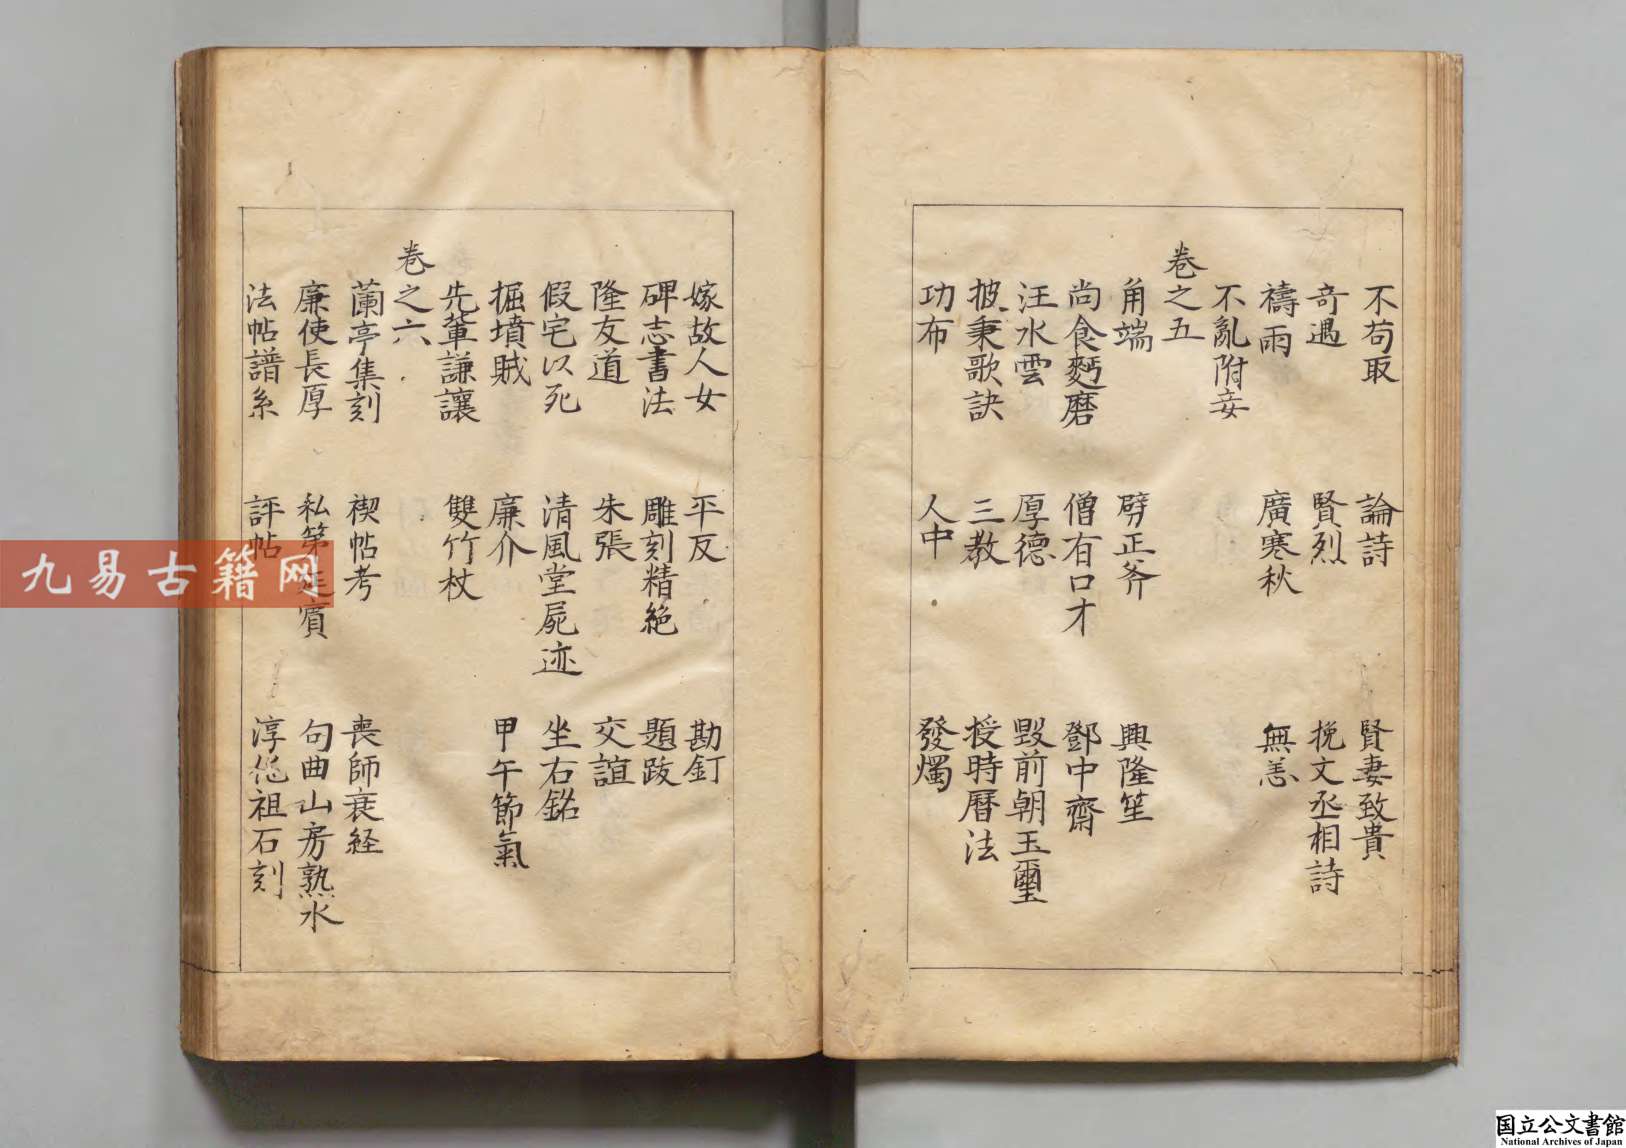 不苟取 論詩 賢妻致貴
奇遇 賢烈 挽文丞相詩
禱雨 廣寒秋 無恙
不亂附妾
卷之五
角端 劈正斧 興隆笙
尚食麪磨 僧有口才 鄧中齋
汪水雲 厚德 毀前朝玉璽
披秉歌訣 三教 授時曆法
功布 人中 發燭
嫁故人女 平反 勘釘
碑志書法 雕刻精絶 題跋
隆友道 朱張 交誼
假宅以死 清風堂屍迹 坐右銘
掘墳賊 廉介 甲午節氣
先輩謙讓 雙竹杖
卷之六
蘭亭集刻 禊帖考 喪師衰経
廉使長厚 私第延賓 句曲山房熟水
法帖譜系 評帖 淳化祖石刻
九易古籍网
国立公文書館
National Archives of Japan